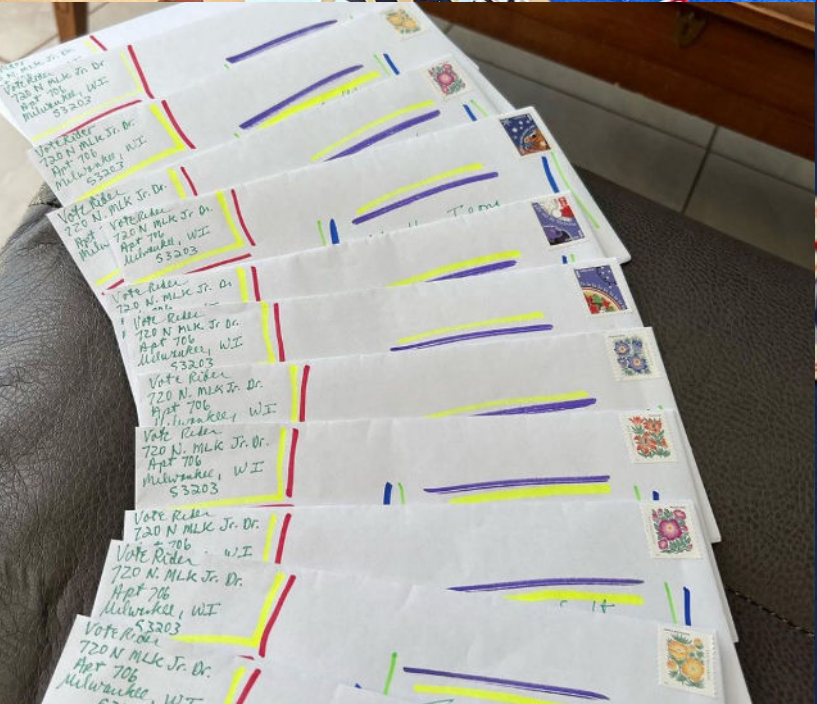 N. MLK Jr. Dr.
Vote Rider
720 N MLK Jr. Dr.
Apt 706
Milwaukee, WI
53203
Vote Rider
720 N MLK Jr. Dr.
Apt 706
Milwaukee, WI
53203
Vote Rider
720 N. MLK Jr. Dr.
Apt
Vote Rider
720 N MLK Jr. Dr.
Apt 706
Milwaukee, WI
53203
Vote Rider
720 N. MLK Jr. Dr
Vote Rider
720 N MLK Jr. Dr.
Apt 706
Milwaukee, WI
53203
Vote Rider
720 N. MLK Jr. Dr.
Apt 706
Milwaukee, WI
Vote Rider
720 N. MLK Jr. Dr.
Apt 706
Milwaukee, WI
53203
Vote Rider
720 N MLK Jr. Dr.
706
WI
Vote Rider
720 N. MLK Jr. Dr.
Apt 706
Milwaukee, WI
53203
Vote Rider
720 N. MLK Jr. Dr.
Apt 706
Milwaukee, WI